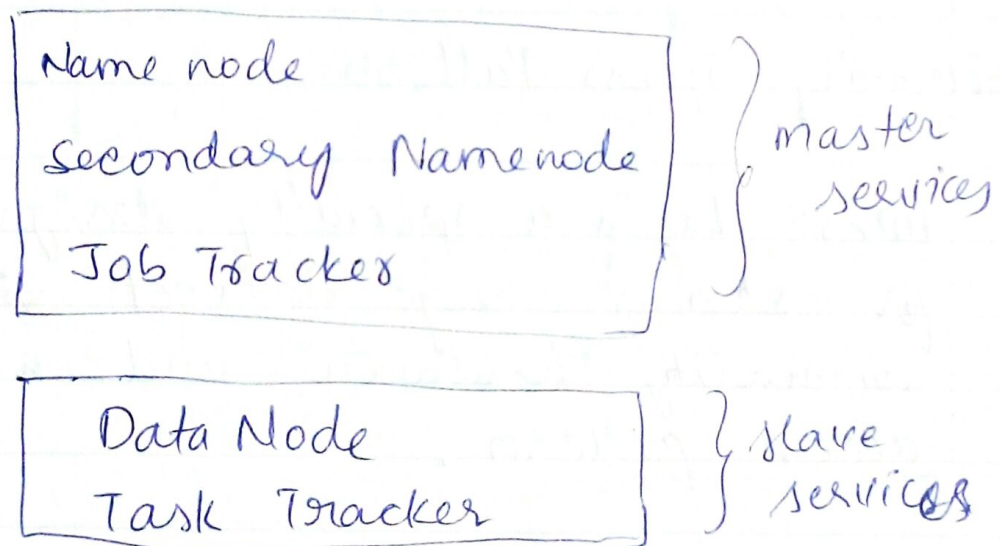 Name node
Secondary Namenode
Job Tracker
master
services
Data Node
Task Tracker
slave
services